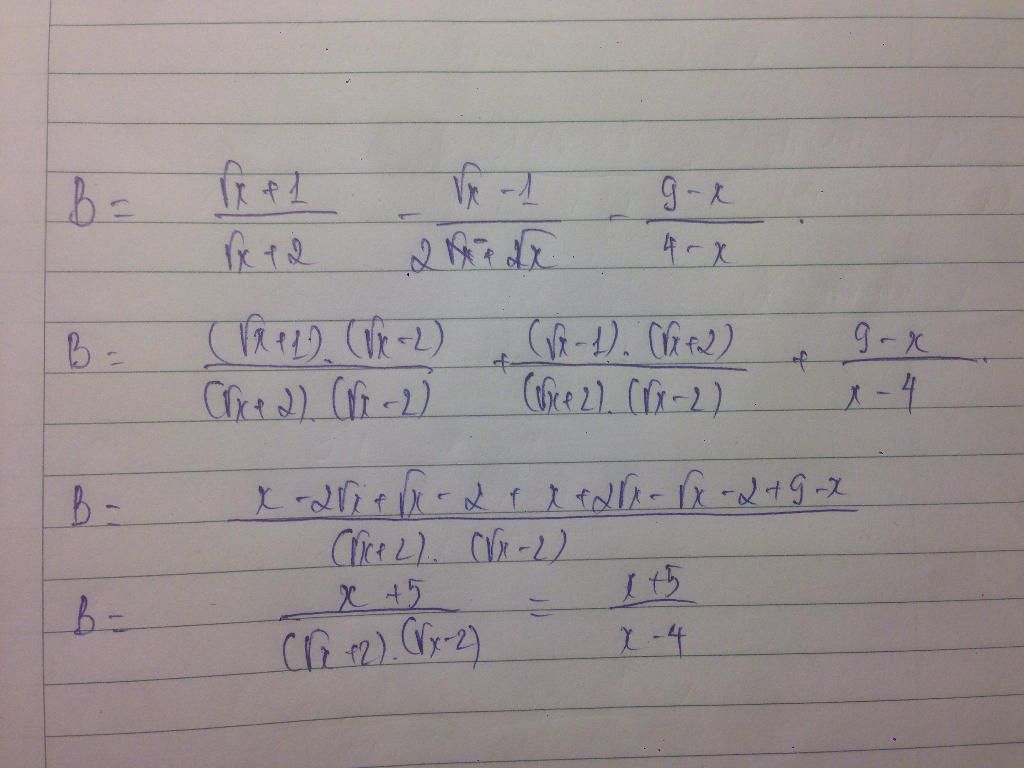 B = (√x + 1)/(√x + 2) - (√x - 1)/(2 - √x) - (9 - x)/(4 - x) .
B = ((√x+1).(√x-2))/((√x+2).(√x-2)) + ((√x-1).(√x+2))/((√x+2).(√x-2)) + (9-x)/(x-4) .
B = (x - 2√x + √x - 2 + x + 2√x - √x - 2 + 9 - x)/((√x+2).(√x-2))
B = (x + 5)/((√x+2).(√x-2)) = (x+5)/(x-4)